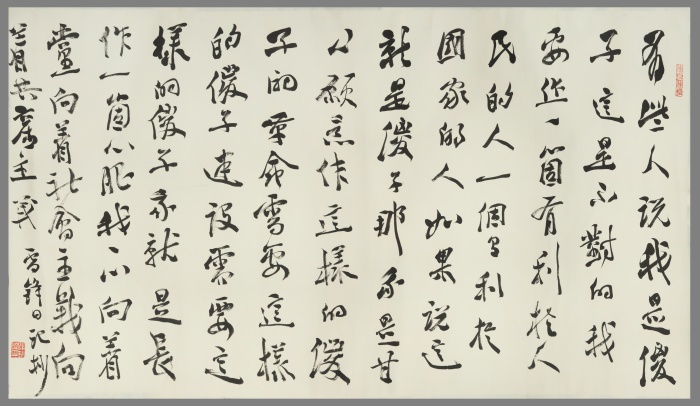 有些人説我是傻
子這是不對的我
要作一箇有利於人
民的人一個有利於
國家的人如果説這
就是傻子那我是甘
心願意作這樣的傻
子的革命需要這樣
的傻子建設需要這
樣的傻子我就是長
作一箇心眼我一心向着
黨向着社會主義向
着共產主義
雷鋒日記抄